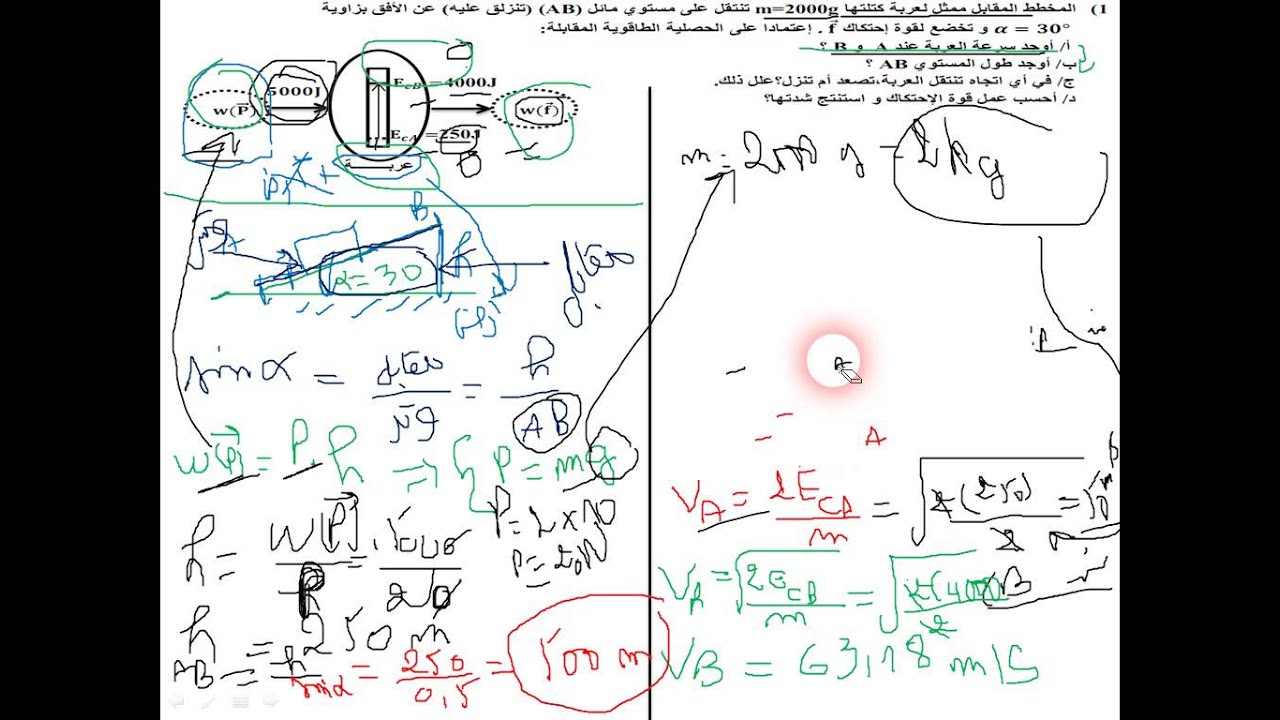 1) المخطط المقابل ممثل لعربة كتلتها m=2000g تنتقل على مستوي مائل (AB) (تنزلق عليه) عن الأفق بزاوية
α = 30° و تخضع لقوة إحتكاك f⃗ . إعتمادا على الحصلية الطاقوية المقابلة:
أ/ أوجد سرعة العربة عند A و B ؟
ب/ أوجد طول المستوي AB ؟
ج/ في أي اتجاه تنتقل العربة،تصعد أم تنزل؟علل ذلك.
د/ أحسب عمل قوة الإحتكاك و استنتج شدتها؟
5000J
w(P⃗)
E_cB =4000J
w(f⃗)
E_cA =250J
عربة
m = 2000 g = 2 kg
B
α = 30
h
sin α = h / AB
w(P⃗) = P . h → P = mg
P = 2 × 10
P = 20N
h = W(P⃗) / P = 5000 / 20
h = 250 m
AB = h / sin α = 250 / 0,5 = 500 m
A
A
V_A = 2E_CA / m = √ 2(250) / 2 =
V_B = √ 2E_CB / m = √ 2(4000) / 2
VB = 63,18 m/s